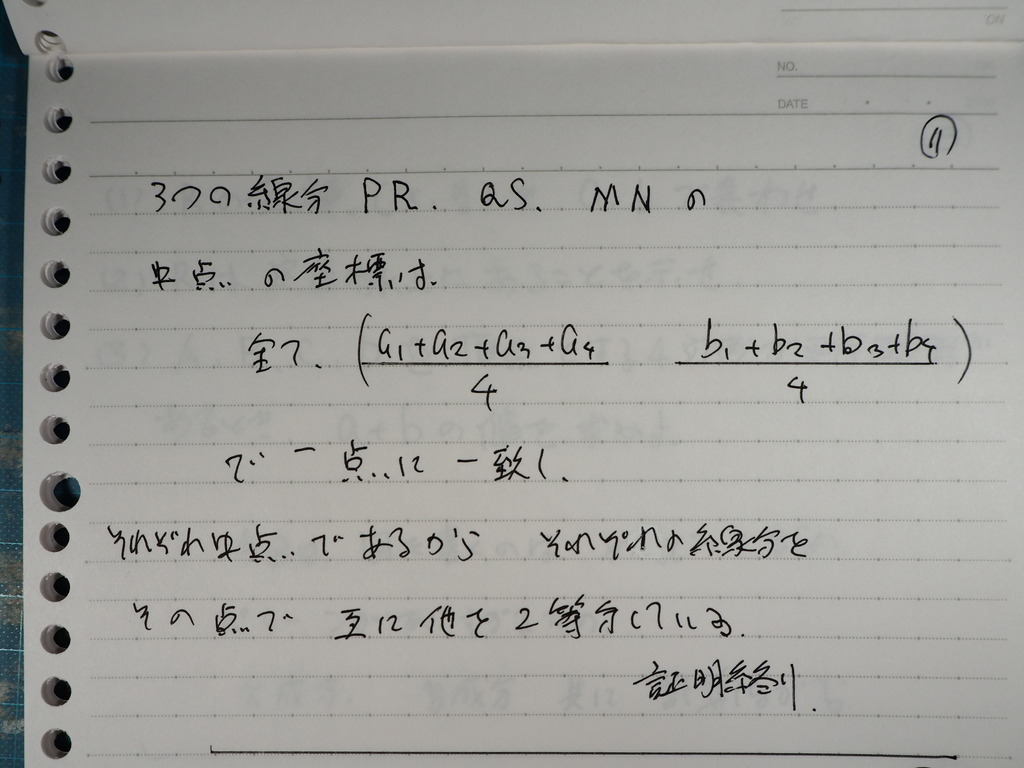 NO.
DATE
⑪
3つの線分 PR. QS. MN の
中点 の座標は.
全て. (a₁+a₂+a₃+a₄/4 b₁+b₂+b₃+b₄/4)
で 一点に 一致し.
それぞれ中点であるから それぞれの線分を
その点で 互に他を2等分している.
証明終り.